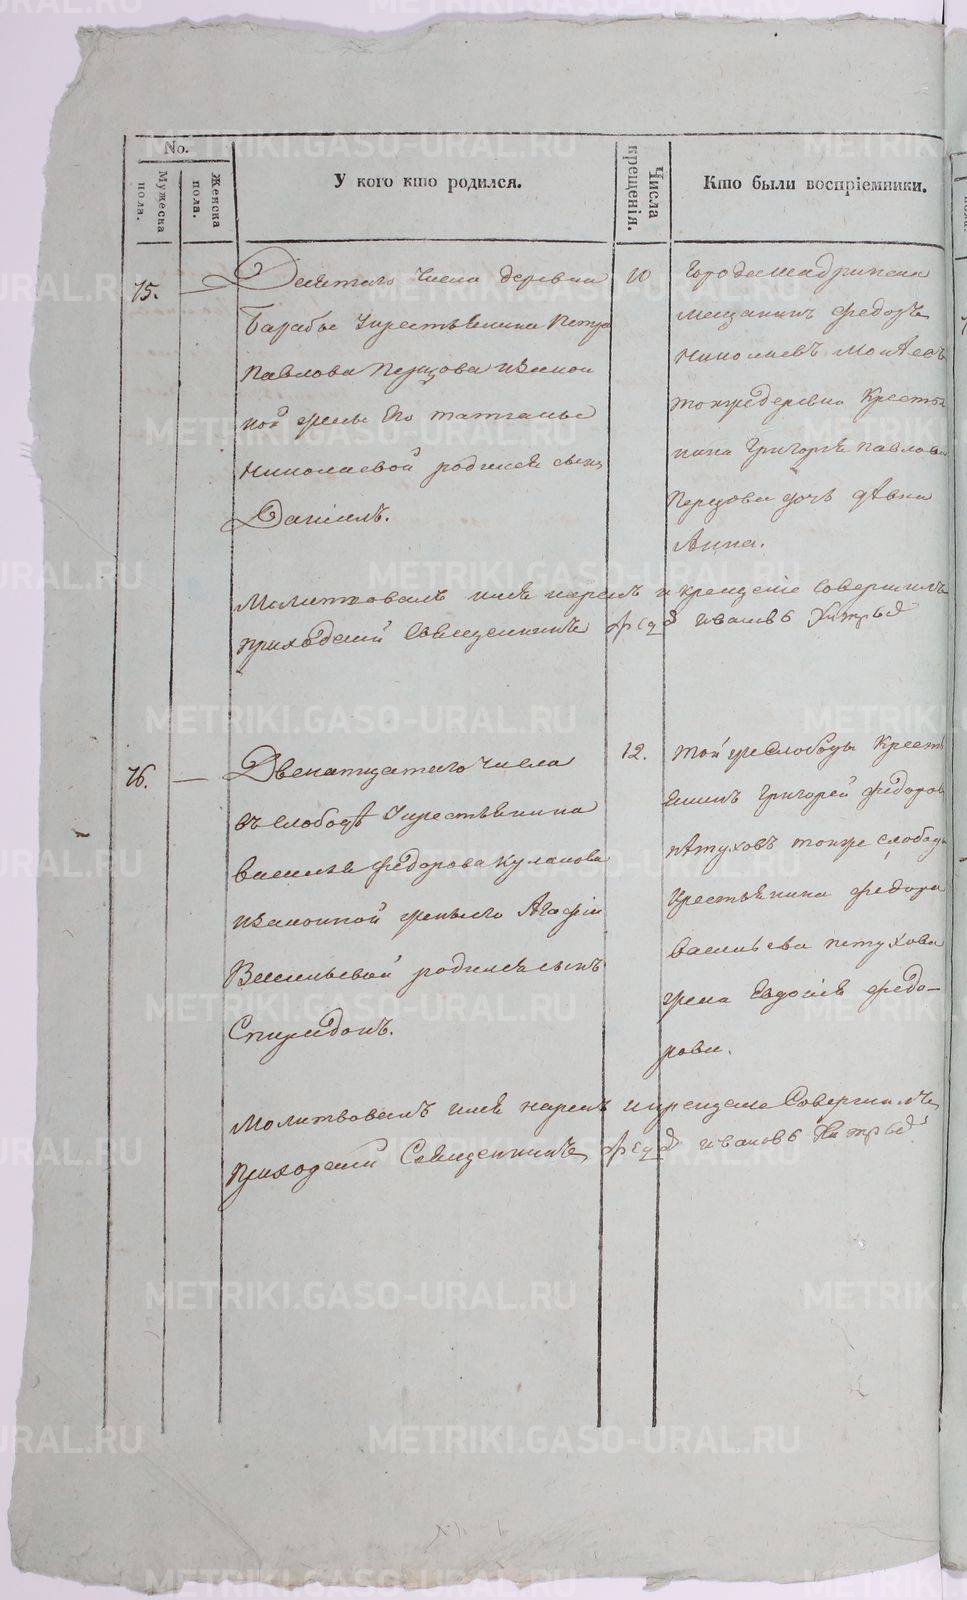 No.
Мужеска пола.
Женска пола.
У кого кто родился.
Числа крещенія.
Кто были воспріемники.
75. — Десятаго числа деревни
Барабы у крестьянина Петра
Павлова Перцова и законной
жены его татьяны
Николаевой родился сынъ
Данiилъ.
10
города шадринска
мещанинъ федоръ
николаевъ
тояже деревни Крестьянина
Григорья павлова
Перцова дочь дѣвка
Анна.
Молитвовалъ имя нарекъ и крещенiе совершилъ
приходскiй Священникъ Ивановъ
76. — Двенатцатаго числа
въ слободѣ у крестьянина
василья федорова Кулакова
и законной жены его Агафiи
Васильевой родился сынъ
Спиридонъ.
12.
той же слободы Крестьянинъ
Григорей федоровъ
пѣтуховъ тояже слободы
Крестьянина федора
васильева петухова
жена Евдокiя федорова.
Молитвовалъ имя нарекъ и крещенiе Совершилъ
приходскiй Священникъ Ивановъ
METRIKI.GASO-URAL.RU